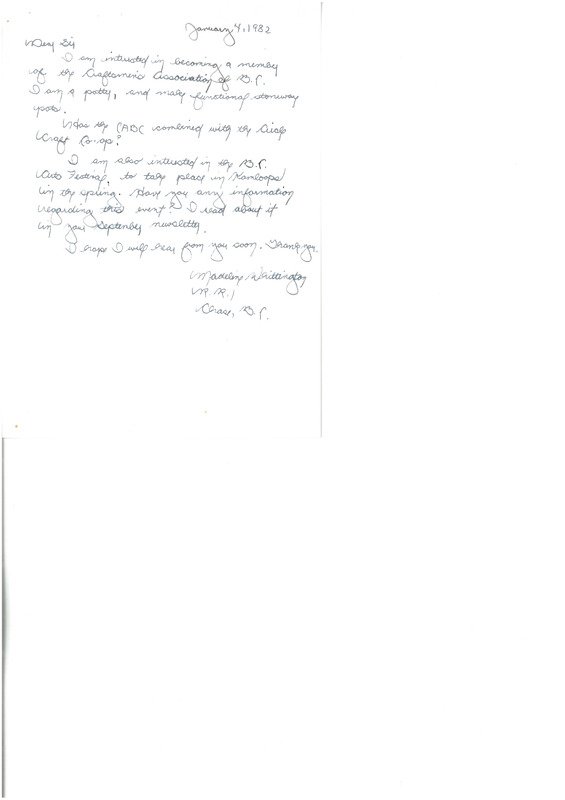 January 4, 1982
Dear Sir
I am interested in becoming a member
of the Craftsmen's Association of B.C.
I am a potter, and make functional stoneware
pots.
Has the CABC combined with the Circle
Craft Co-op?
I am also interested in the B.C.
Arts Festival, to take place in Kamloops
in the spring. Have you any information
regarding this event? I read about it
in your September newsletter.
I hope I will hear from you soon. Thank you.
Madeline Whittington
R.R. 1
Chase, B.C.